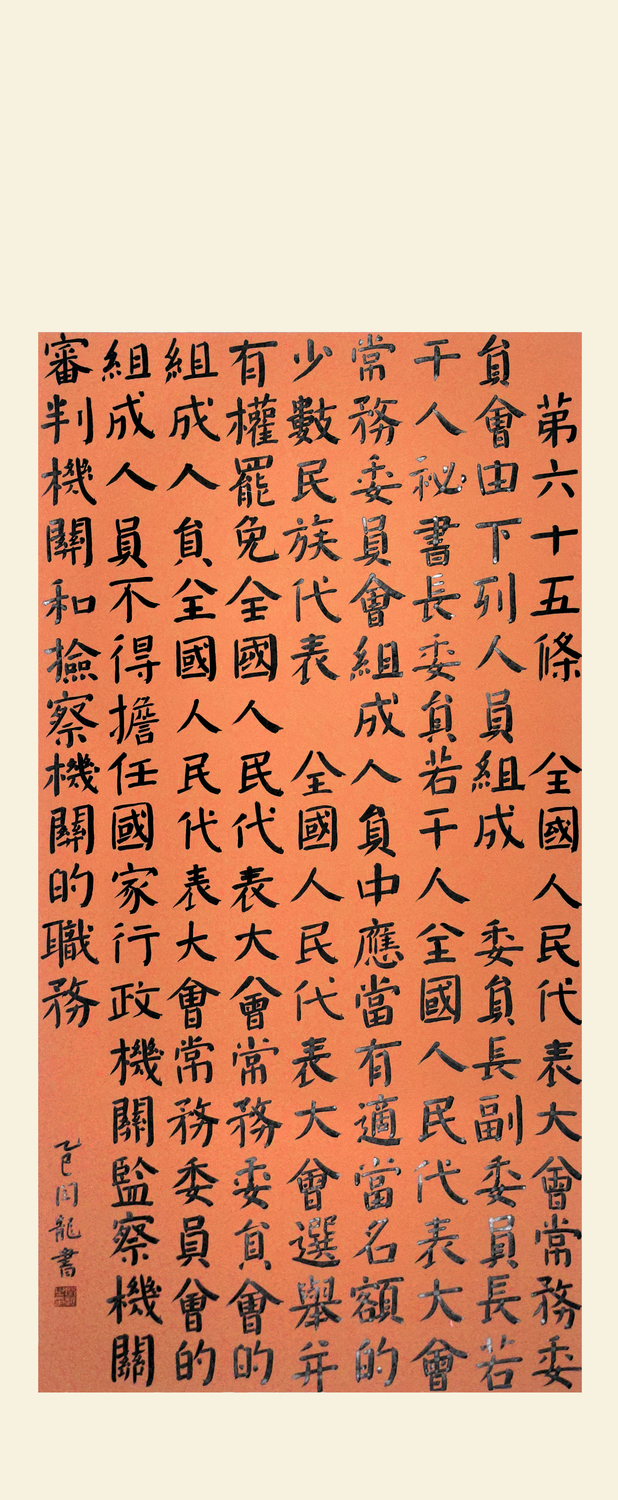 第六十五條 全國人民代表大會常務委
員會由下列人員組成 委員長副委員長若
干人祕書長委員若干人全國人民代表大會
常務委員會組成人員中應當有適當名額的
少數民族代表 全國人民代表大會選舉并
有權罷免全國人民代表大會常務委員會的
組成人員全國人民代表大會常務委員會的
組成人員不得擔任國家行政機關監察機關
審判機關和撿察機關的職務
乙巳闫龍書